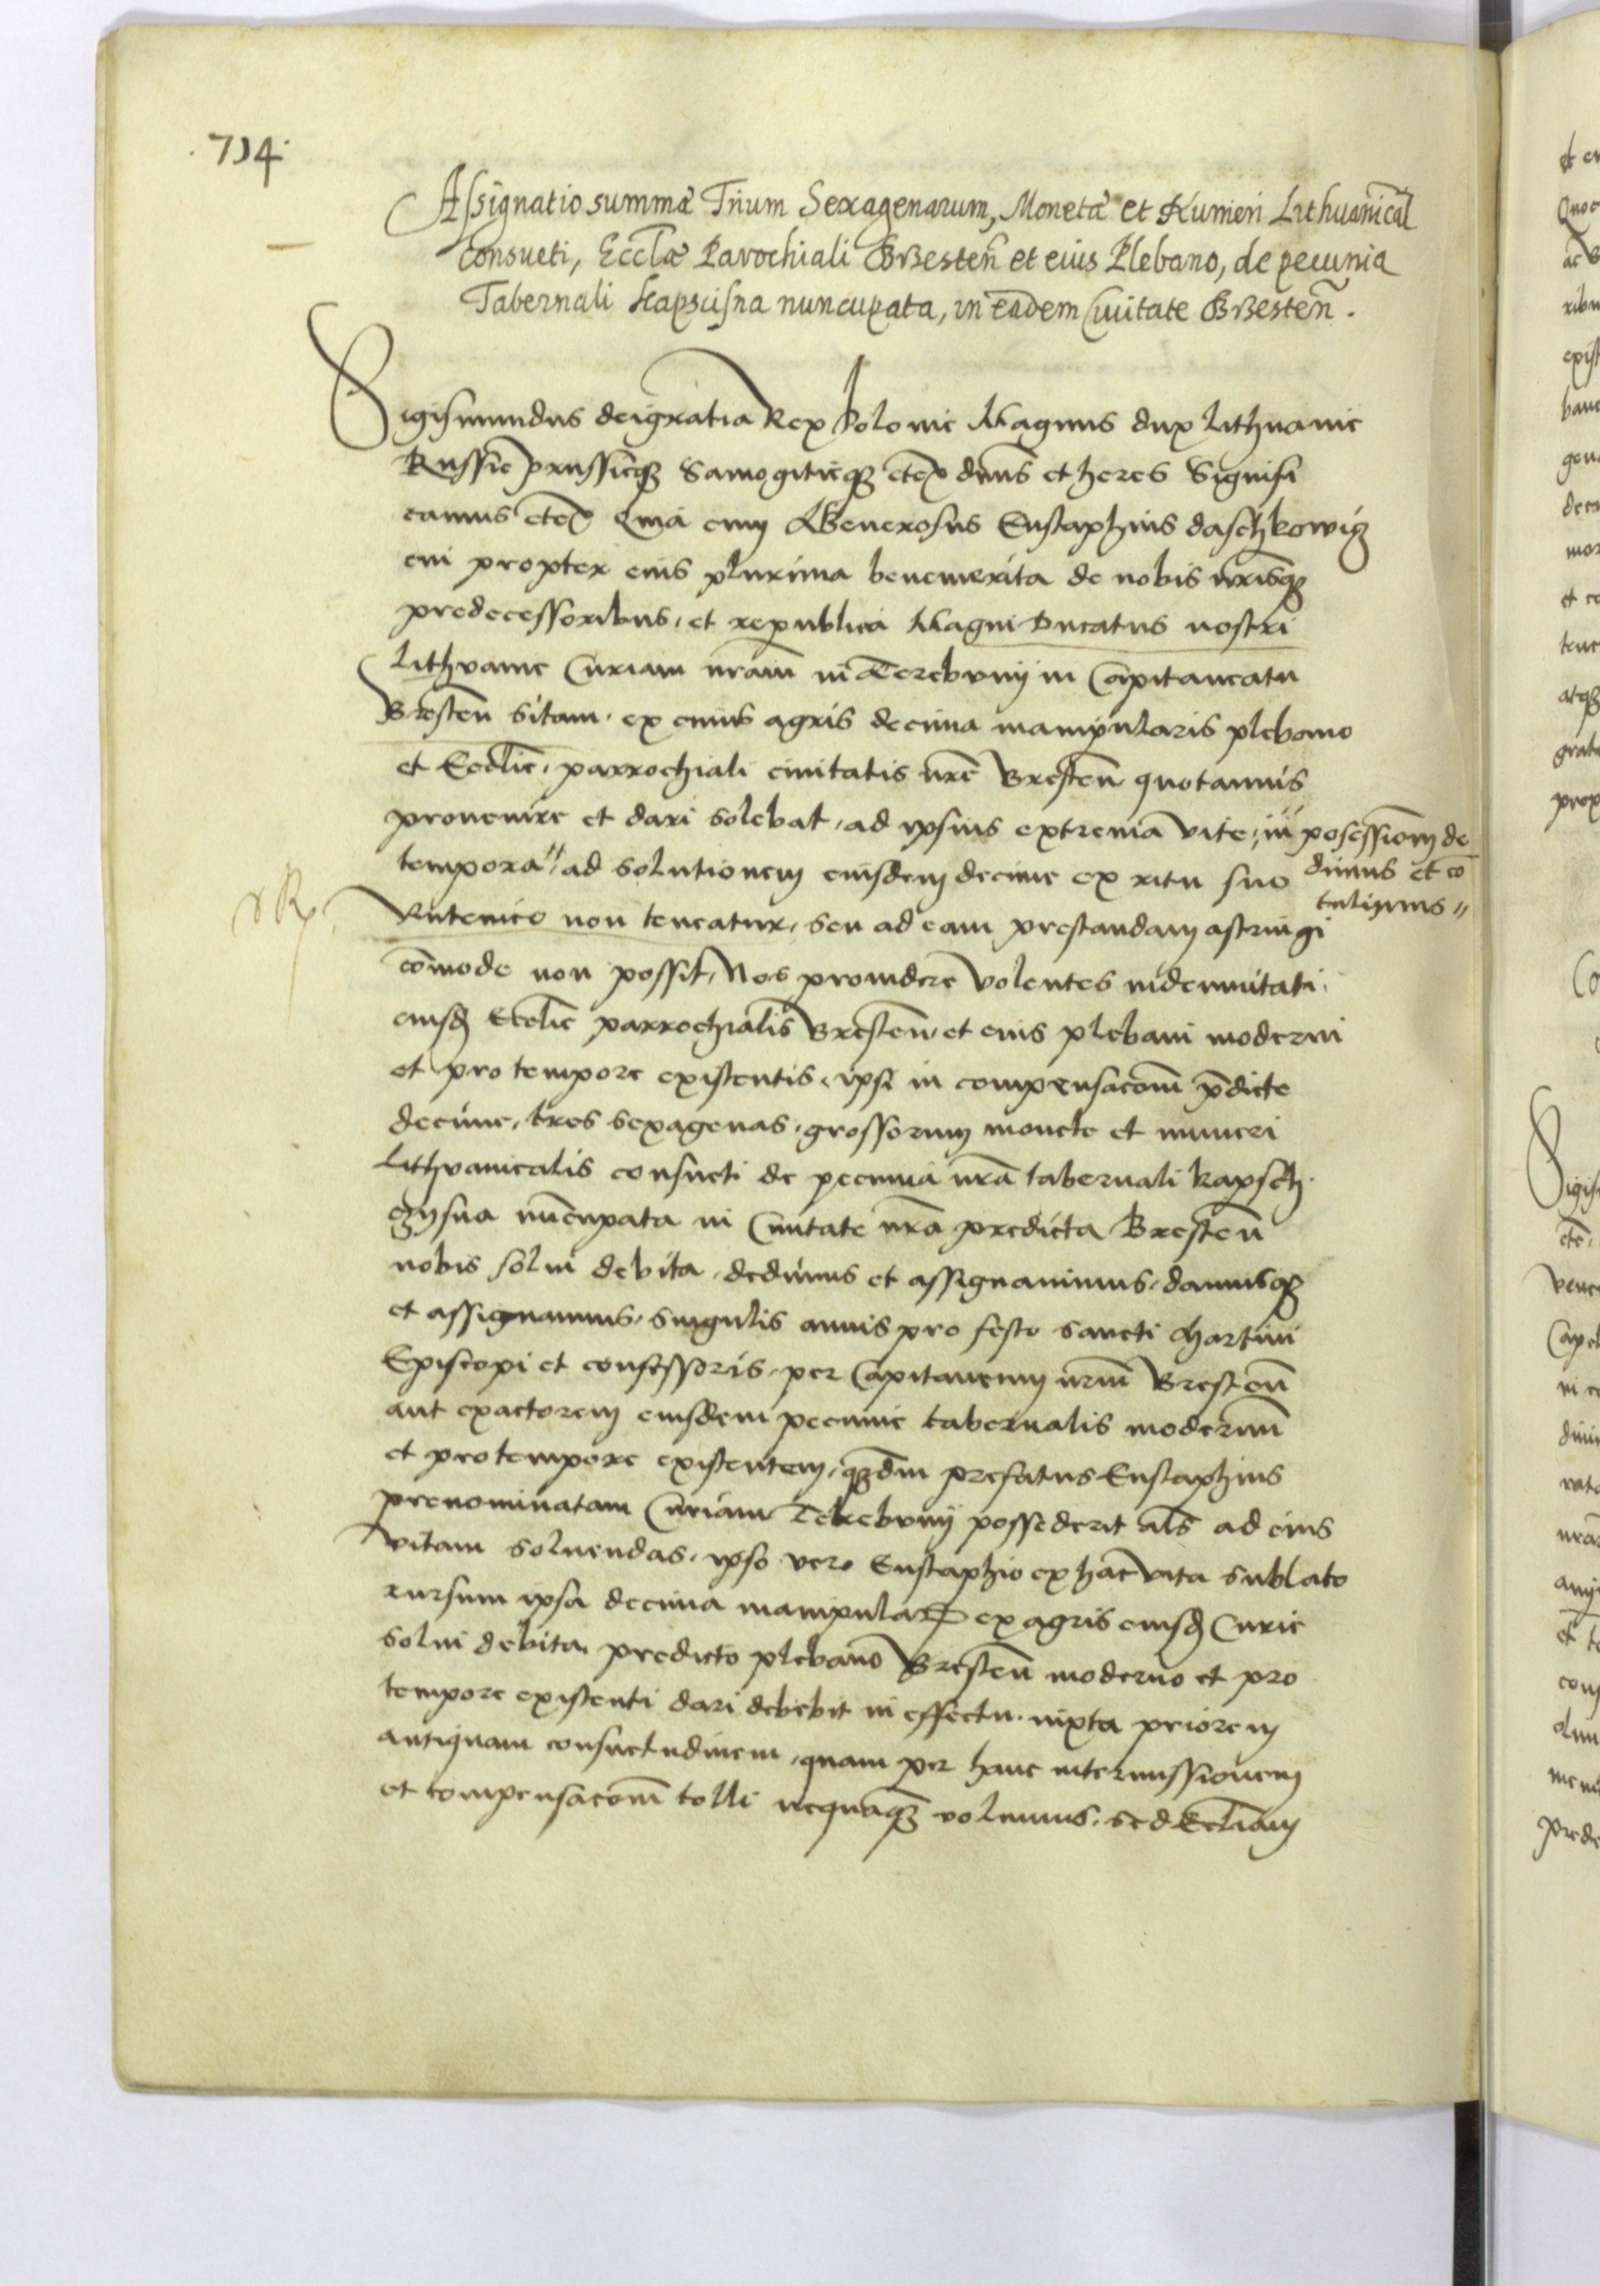 714
Assignatio summæ Trium Sexagenarum, Monetæ et Numeri Lithuanical
Consueti, Eccłæ Parochiali Bresteñ et eius Plebano, de pecunia
Tabernali Kapscisna nuncupata, in eadem Civitate Bresteñ.
Sigismundus dei gratia Rex Polonie Magnus dux Lithuanie
Russie prussieq Samogitieq etc dnns et heres Signifi
camus etc Quia cum Generosus Eustaphius daschkowicz
cui propter eius plurima benemerita de nobis nrisq
predecessoribus, et republica Magni Ducatus nostri
Lithvanie Curiam nram in Terebvny in Capitaneatu
Bresten sitam, ex cuius agris decima manipularis plebano
et Ecclie parrochiali civitatis nre Bresten quotannis
provenire et dari solebat, ad ipsius extrema vite, in possessionem de
tempora, ad solutionem eiusdem decime ex ritu suo dimus et co
tulimus
Rutenico non teneatur, seu ad eam prestandam astringi
comode non possit, Nos providere volentes indemnitati
eiusd Ecclie parrochialis Bresten, et eius plebani moderni
et pro tempore existentis, ipsi in compensacom pdicte
decime, tres sexagenas, grossorum monete et numeri
Lithvanicalis consueti de pecunia nra tabernali kapsch
czysna nuncupata in Civitate nra predicta Bresten
nobis solvi debita, dedimus et assignavimus, damusq
et assignamus, singulis annis pro festo sancti Martini
Episcopi et confessoris, per Capitaneum nrum Bresten
aut exactorem eiusdem pecunie tabernalis modernum
et pro tempore existentem, qdm prefatus Eustaphius
prenominatam Curiam Terebvny possederit als ad eius
vitam solvendas, ipso vero Eustaphio ex hac vita sublato
rursum ipsa decima manipular ex agris eiusd Curie
solvi debita, predicto plebano Bresten moderno et pro
tempore existenti dari debebit in effectu, iuxta priorem
antiquam consuetudinem, quam per hanc intermissionem
et compensacom tolli nequaq volumus, sed Eccliam